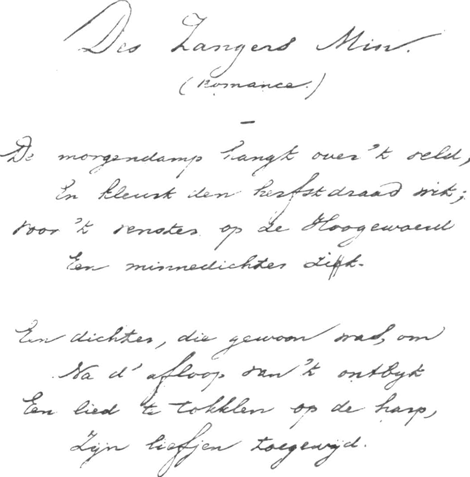 Des Zangers Min.
(Romance.)
De morgendamp hangt over 't veld,
En kleurt den herfstdraad wit;
Voor 't venster op de Hoogewoerd
Een minnedichter zit.
Een dichter, die gewoon was, om
Na d' afloop van 't ontbyt
Een lied te tokklen op de harp,
Zijn liefjen toegewijd.